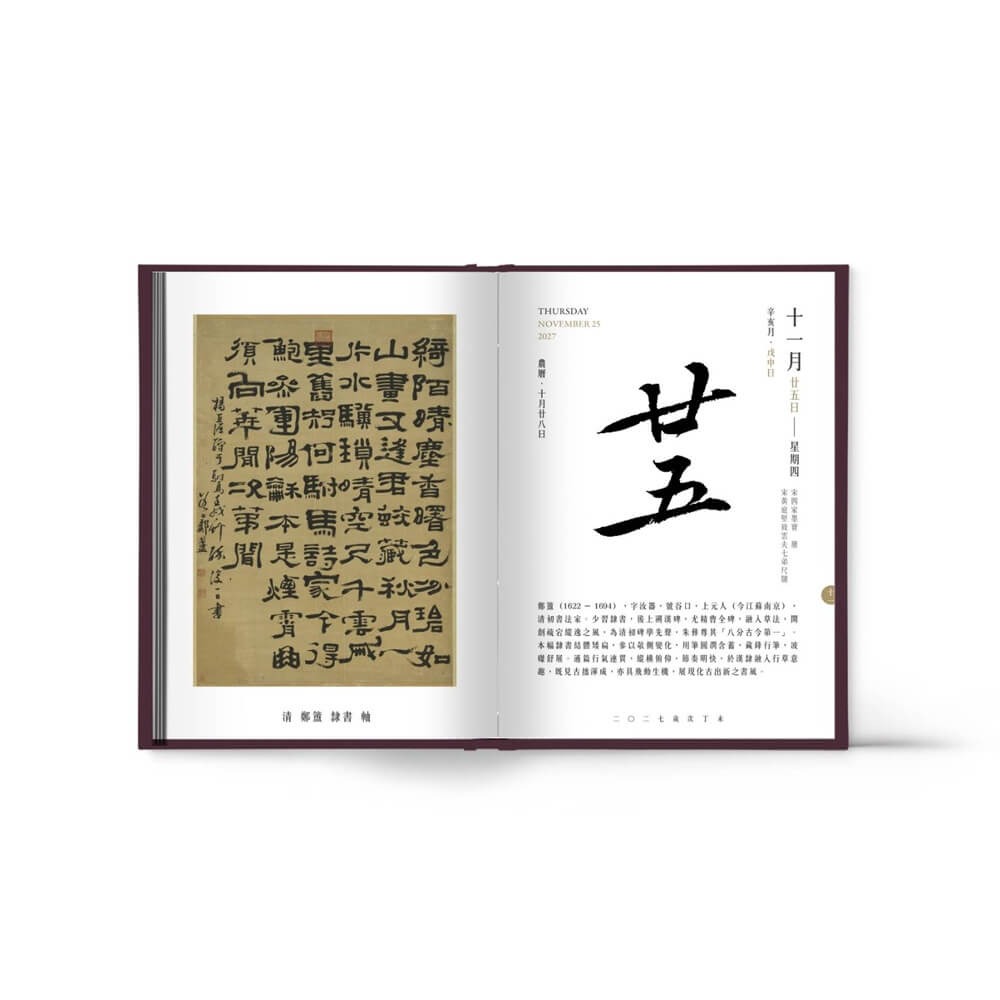 綺陌晴香曙色分
如山畫又逢君蛟藏秋月一
片水驥鎖晴空尺千雲戚
里舊何駙馬詩家今得
鮑參軍陽龢本是煙霄曲
須向聞次第聞
清 鄭簠 隸書 軸
THURSDAY
NOVEMBER 25
2027
農曆・十月廿八日
十一月 廿五日 — 星期四
辛亥月・戊申日
廿五
宋四家墨寶 層
宋黃庭堅致雲夫七弟尺牘
十一
鄭簠（1622 – 1694），字汝器，號谷口，上元人（今江蘇南京），
清初書法家。少習隸書，後上溯漢碑，尤精曹全碑，融入草法，開
創疏宕縱逸之風，為清初碑學先聲，朱彝尊其「八分古今第一」。
本幅隸書結體矮扁，參以欹側變化，用筆圓潤含蓄，藏鋒行筆，波
磔舒展。通篇行氣連貫，縱橫俯仰，節奏明快，於漢隸融入行草意
趣，既見古拙渾成，亦具飛動生機，展現化古出新之書風。
二〇二七歲次丁未